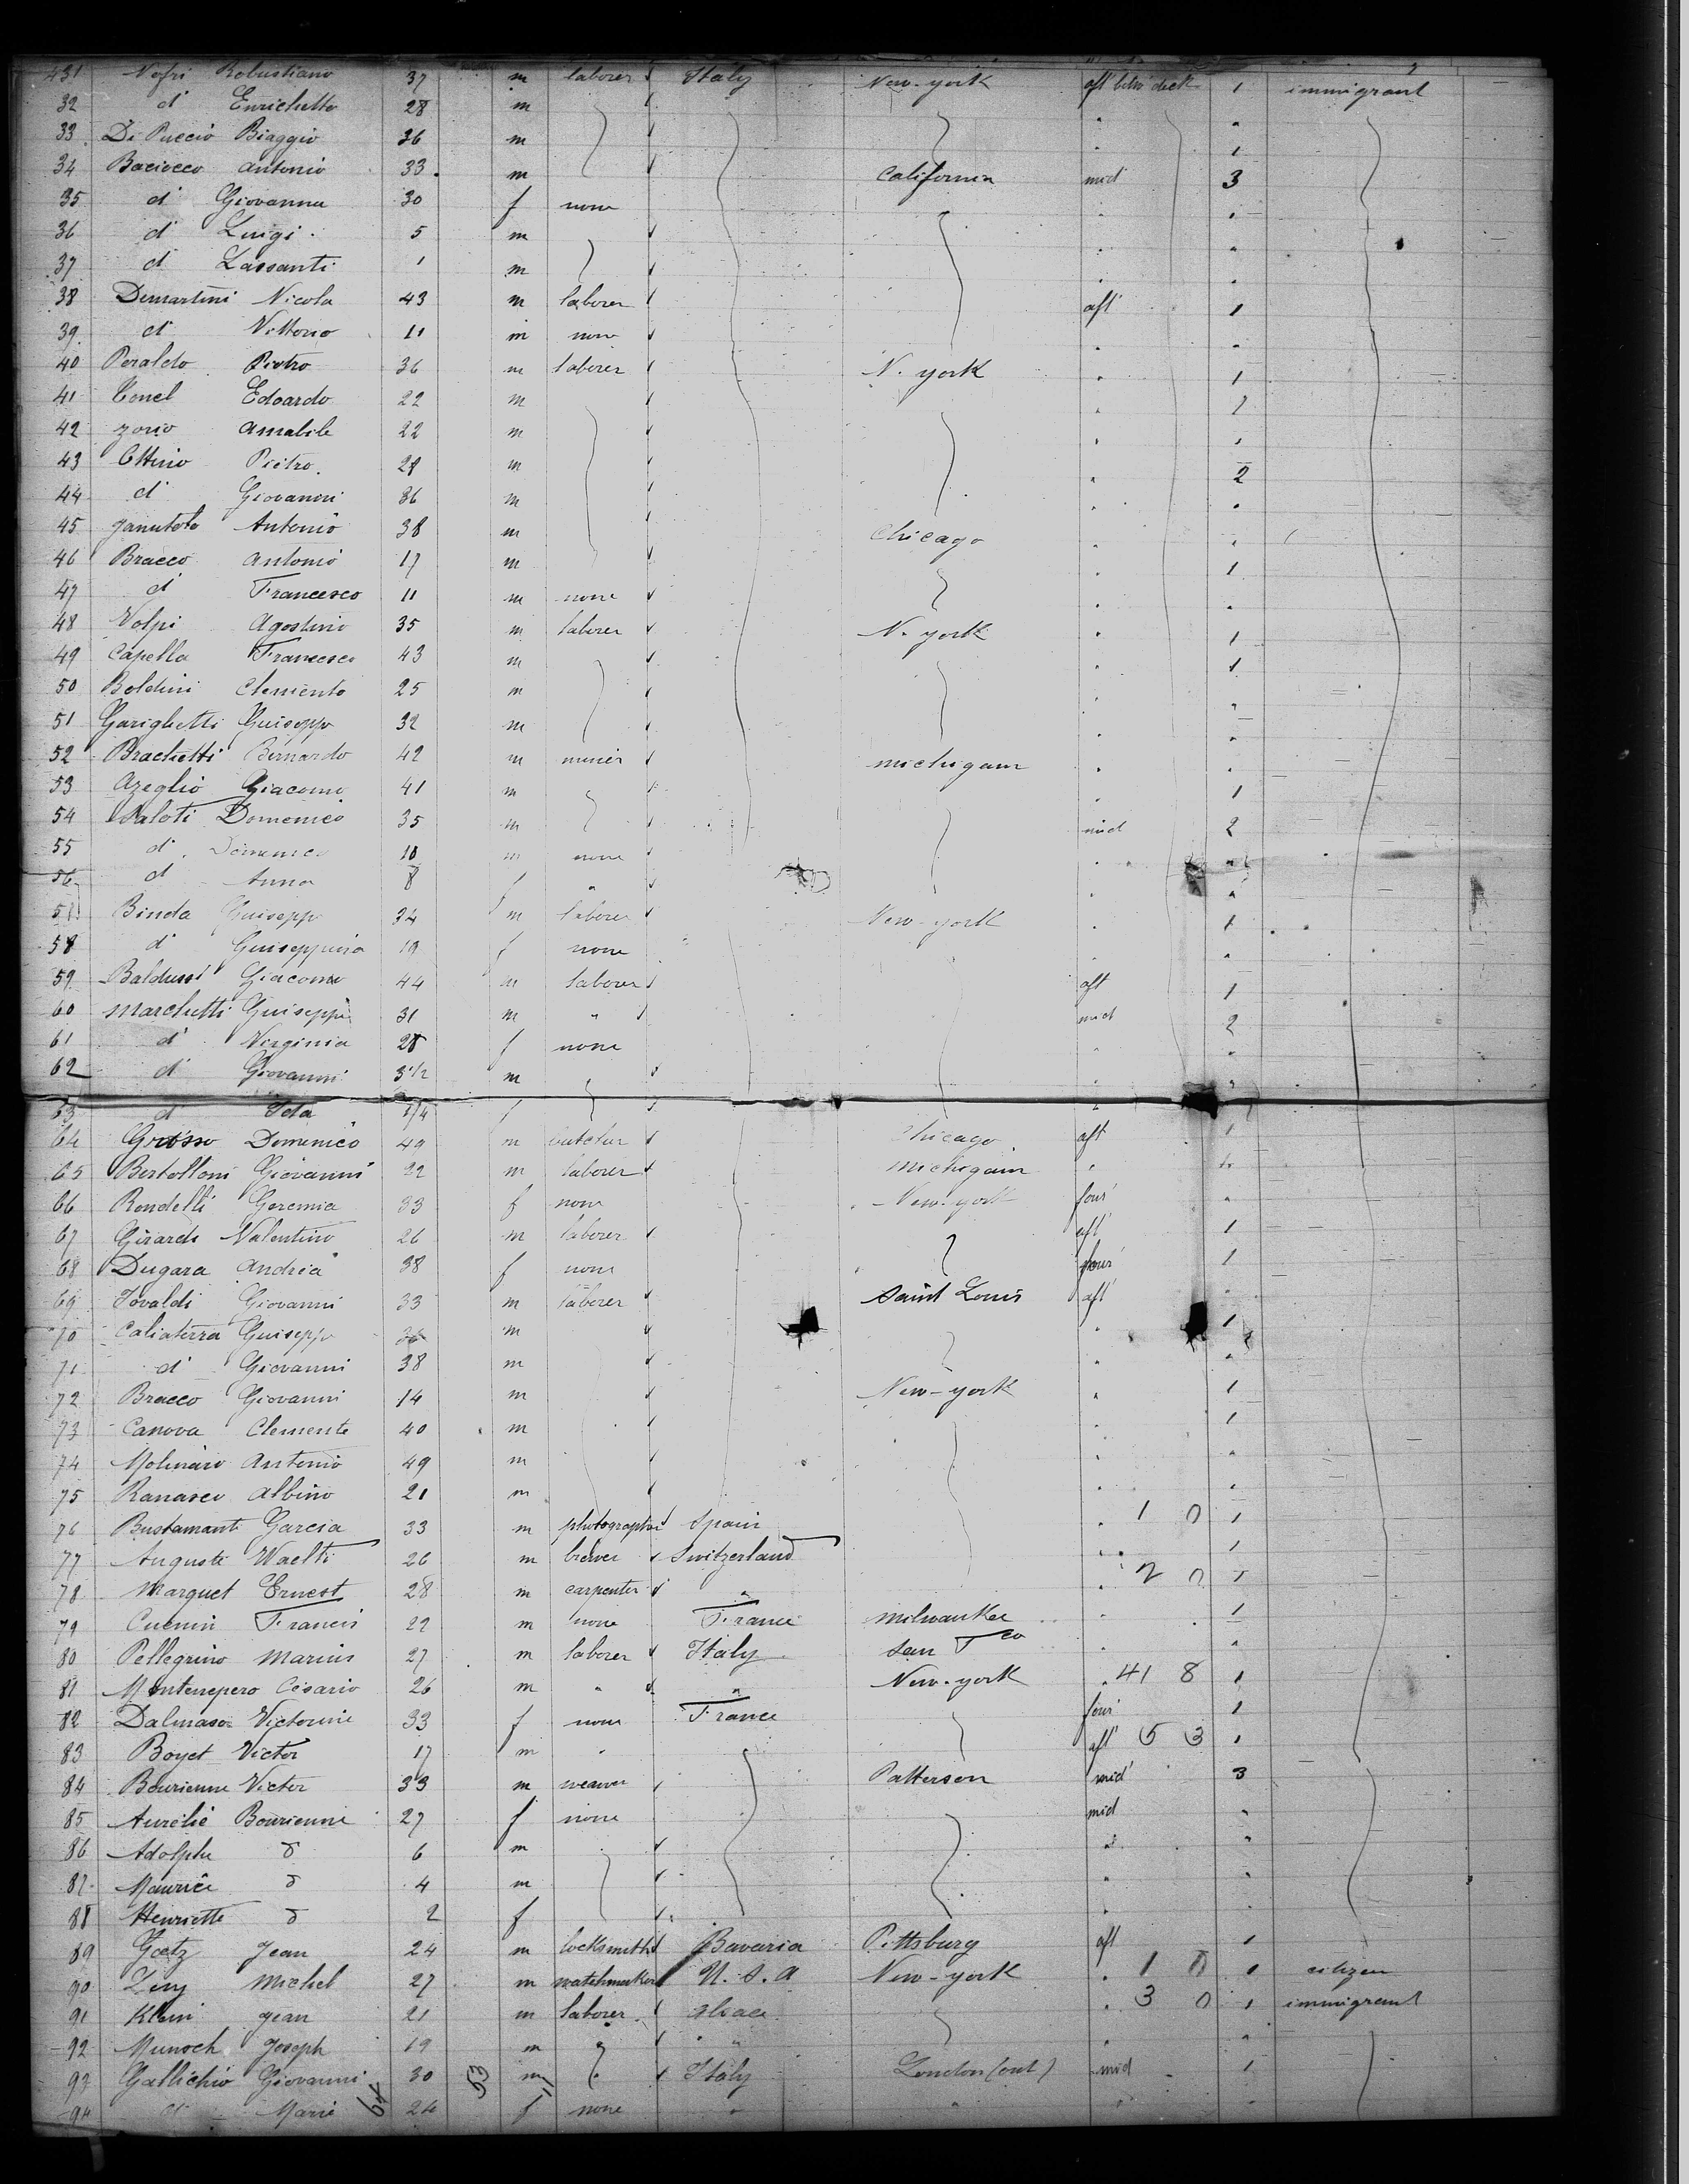 431 Nofri Robustiano 37 m laborer Italy New-york aft betw deck 1 immigrant
32 d° Enrichetto 28 m "
33 Di Puccio Biaggio 36 m " 1
34 Baciocco Antonio 33 m California mid 3
35 d° Giovanna 30 f none " "
36 d° Luigi 5 m " "
37 d° Lassanti 1 m " "
38 Demartini Nicola 43 m laborer aft 1
39 d° Vittorio 11 m none " "
40 Peraldo Pietro 36 m laborer N. york " 1
41 Conel Edoardo 22 m " 1
42 Zorio Amabile 22 m " "
43 Ottino Pietro 28 m " 2
44 d° Giovanni 36 m " "
45 Janutolo Antonio 38 m Chicago " "
46 Bracco Antonio 17 m " 1
47 d° Francesco 11 m none " "
48 Volpi Agostino 35 m laborer N. york " 1
49 Capella Francesco 43 m " 1
50 Boldini Clemento 25 m " "
51 Garighetti Guiseppe 32 m " "
52 Brachetti Bernardo 42 m miner michigam " "
53 Azeglio Giacomo 41 m " 1
54 Saloti Domenico 35 m mid 2
55 d° Domenico 10 m none " "
56 d° Anna 8 f " " "
57 Binda Guiseppe 34 m laborer New-york " 1
58 d° Guiseppina 19 f none " "
59 Baldussi Giacomo 44 m laborer aft 1
60 Marchetti Guiseppe 31 m " mid 2
61 d° Virginia 28 f none " "
62 d° Giovanni 3 1/2 m " "
63 d° Ida 1/4 f "
64 Grosso Domenico 49 m butcher Chicago aft 1
65 Bertolloni Giovanni 22 m laborer michigain "
66 Rondelli Geremia 33 f none New-york four "
67 Girardi Valentino 26 m laborer aft 1
68 Dugara Andria 38 f none four 1
69 Tovaldi Giovanni 33 m laborer Saint Louis aft "
70 Caliaterra Guiseppe 36 m " 1
71 d° Giovanni 38 m " "
72 Bracco Giovanni 14 m New-york " 1
73 Canova Clemente 40 m " 1
74 Molinaro Antonio 49 m " "
75 Ranasco Albino 21 m " "
76 Bustamante Garcia 33 m photographer Spain " 1 0 1
77 Auguste Waelti 26 m brewer Switzerland " 1
78 Marquet Ernest 28 m carpenter " " 2 0 1
79 Cuenin Francis 22 m none France Milwaukee " 1
80 Pellegrino Marius 27 m laborer Italy San Fco " "
81 Montenepero Césario 26 m " " New-york " 41 8 1
82 Dalmaso Victorine 33 f none France four 1
83 Boyet Victor 17 m " aft 5 3 1
84 Bourienne Victor 33 m weaver Patterson mid 3
85 Aurélie Bourienne 27 f none mid "
86 Adolphe d° 6 m " "
87 Maurice d° 4 m " "
88 Henriette d° 2 f " "
89 Goetz Jean 24 m locksmith Bavaria Pittsburg aft 1
90 Levy Michel 27 m watchmaker U.S.A New-york " 1 0 1 citizen
91 Klein Jean 21 m laborer Alsace " 3 0 1 immigrant
92 Munsch Joseph 19 m " " " "
93 Gallichio Giovanni 30 53 m " Italy London (ont) mid 1
94 d° Marie 64 24 f 11 none " " " "